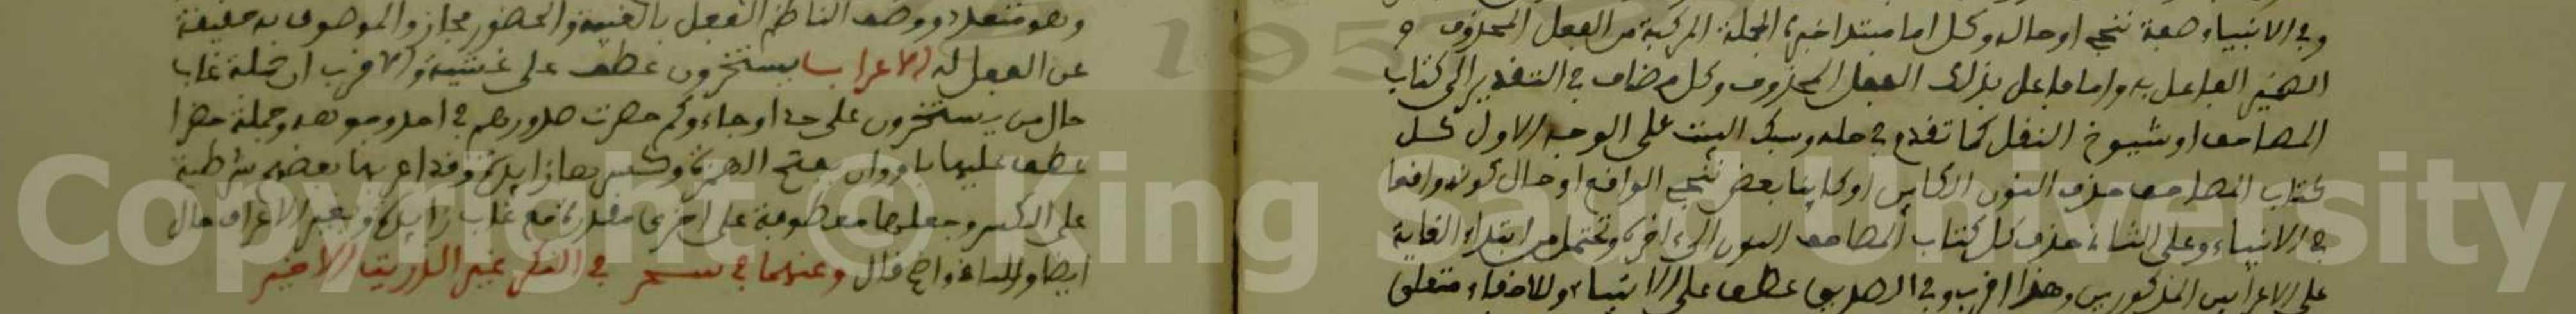 وفي الانبياء صفة تنجي او حاله وكل اما مبتدا خبره الجملة المركبة من الفعل المحذوف و
الضمير الفاعل به واما فاعل بذلك الفعل المحذوف وكل مضاف في التقدير الى كتاب
المصاحف او شيوخ النقل كما تقدم في حله وسبك البيت على الوجه الاول كل
كتاب المصاحف حذف النون الكاين او كاينا بعض تنجي الواقع او حال كونه واقعا
في الانبياء وعلى الثاني حذف كل كتاب المصاحف النون الى اخره وتحتمل من ابتداء الغاية
على الاعرابين المذكورين وهذا اقرب وفي الصديق عطف على الانبياء وللاخفاء متعلق
وهو متعدد ووصف الناظم الفعل بالغيبة والحضور مجاز والموصوف به حقيقة
عن الفعل له الاعراب يستخرون عطف على غشية والاقرب ان جملة غاب
حال من يستخرون على حد او جاءوكم حصرت صدورهم في احد وجوهه وجملة حضرا
عطف عليها باو وان بفتح الهمزة وكسرها زايدة وقد اعربها بعضهم شرطية
على الكسر وجعلها معطوفة على اخرى مقدرة مع غاب زايدة وبغير الاعراف حال
ايضا وللماء واضح قال وعنهما في سـحر في النكر غير الذريت الاخير
Copyright © King Saud University
195